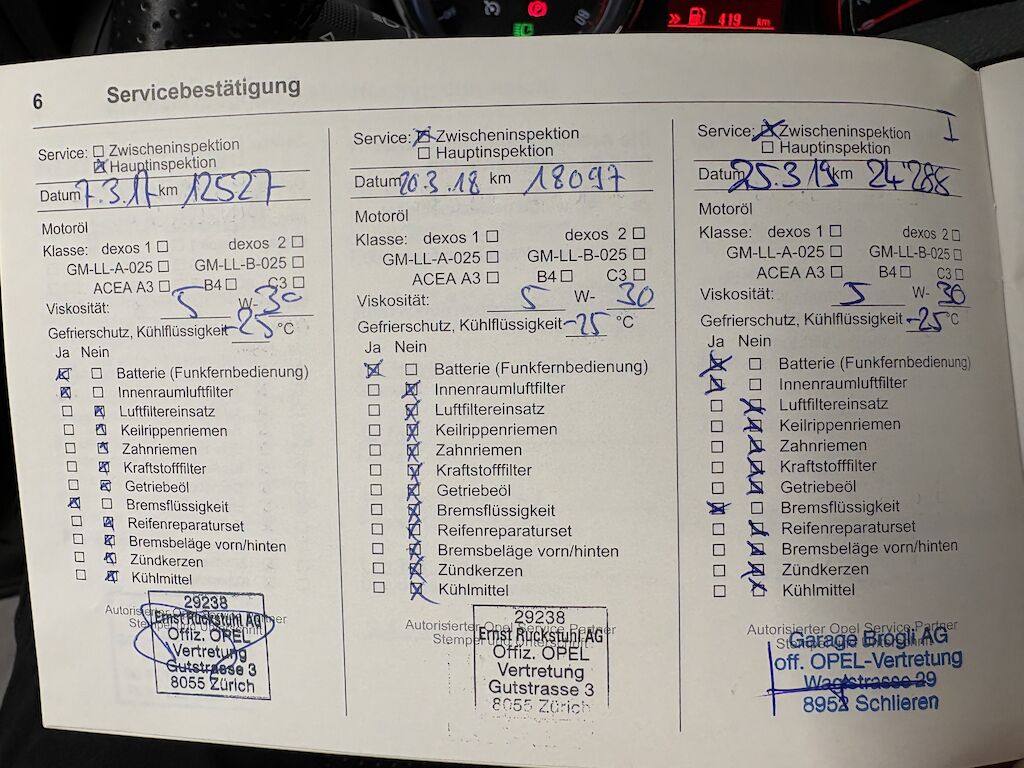 419 km
6 Servicebestätigung
I
Service: Zwischeninspektion
Hauptinspektion
Datum 7.3.17 km 12527
Motoröl
Klasse: dexos 1 dexos 2
GM-LL-A-025 GM-LL-B-025
ACEA A3 B4 C3
Viskosität: 5 W- 30
Gefrierschutz, Kühlflüssigkeit -25 °C
Ja Nein
Batterie (Funkfernbedienung)
Innenraumluftfilter
Luftfiltereinsatz
Keilrippenriemen
Zahnriemen
Kraftstofffilter
Getriebeöl
Bremsflüssigkeit
Reifenreparaturset
Bremsbeläge vorn/hinten
Zündkerzen
Kühlmittel
Autorisierter Opel Service Partner
Stempel und Unterschrift
29238
Ernst Rückstuhl AG
Offiz. OPEL
Vertretung
Gutstrasse 3
8055 Zürich
Service: Zwischeninspektion
Hauptinspektion
Datum 20.3.18 km 18097
Motoröl
Klasse: dexos 1 dexos 2
GM-LL-A-025 GM-LL-B-025
ACEA A3 B4 C3
Viskosität: 5 W- 30
Gefrierschutz, Kühlflüssigkeit -25 °C
Ja Nein
Batterie (Funkfernbedienung)
Innenraumluftfilter
Luftfiltereinsatz
Keilrippenriemen
Zahnriemen
Kraftstofffilter
Getriebeöl
Bremsflüssigkeit
Reifenreparaturset
Bremsbeläge vorn/hinten
Zündkerzen
Kühlmittel
Autorisierter Opel Service Partner
Stempel und Unterschrift
29238
Ernst Rückstuhl AG
Offiz. OPEL
Vertretung
Gutstrasse 3
8055 Zürich
Service: Zwischeninspektion
Hauptinspektion
Datum 25.3.19 km 24'288
Motoröl
Klasse: dexos 1 dexos 2
GM-LL-A-025 GM-LL-B-025
ACEA A3 B4 C3
Viskosität: 5 W- 30
Gefrierschutz, Kühlflüssigkeit -25 °C
Ja Nein
Batterie (Funkfernbedienung)
Innenraumluftfilter
Luftfiltereinsatz
Keilrippenriemen
Zahnriemen
Kraftstofffilter
Getriebeöl
Bremsflüssigkeit
Reifenreparaturset
Bremsbeläge vorn/hinten
Zündkerzen
Kühlmittel
Autorisierter Opel Service Partner
Stempel und Unterschrift
Garage Brogli AG
off. OPEL-Vertretung
Wagistrasse 29
8952 Schlieren